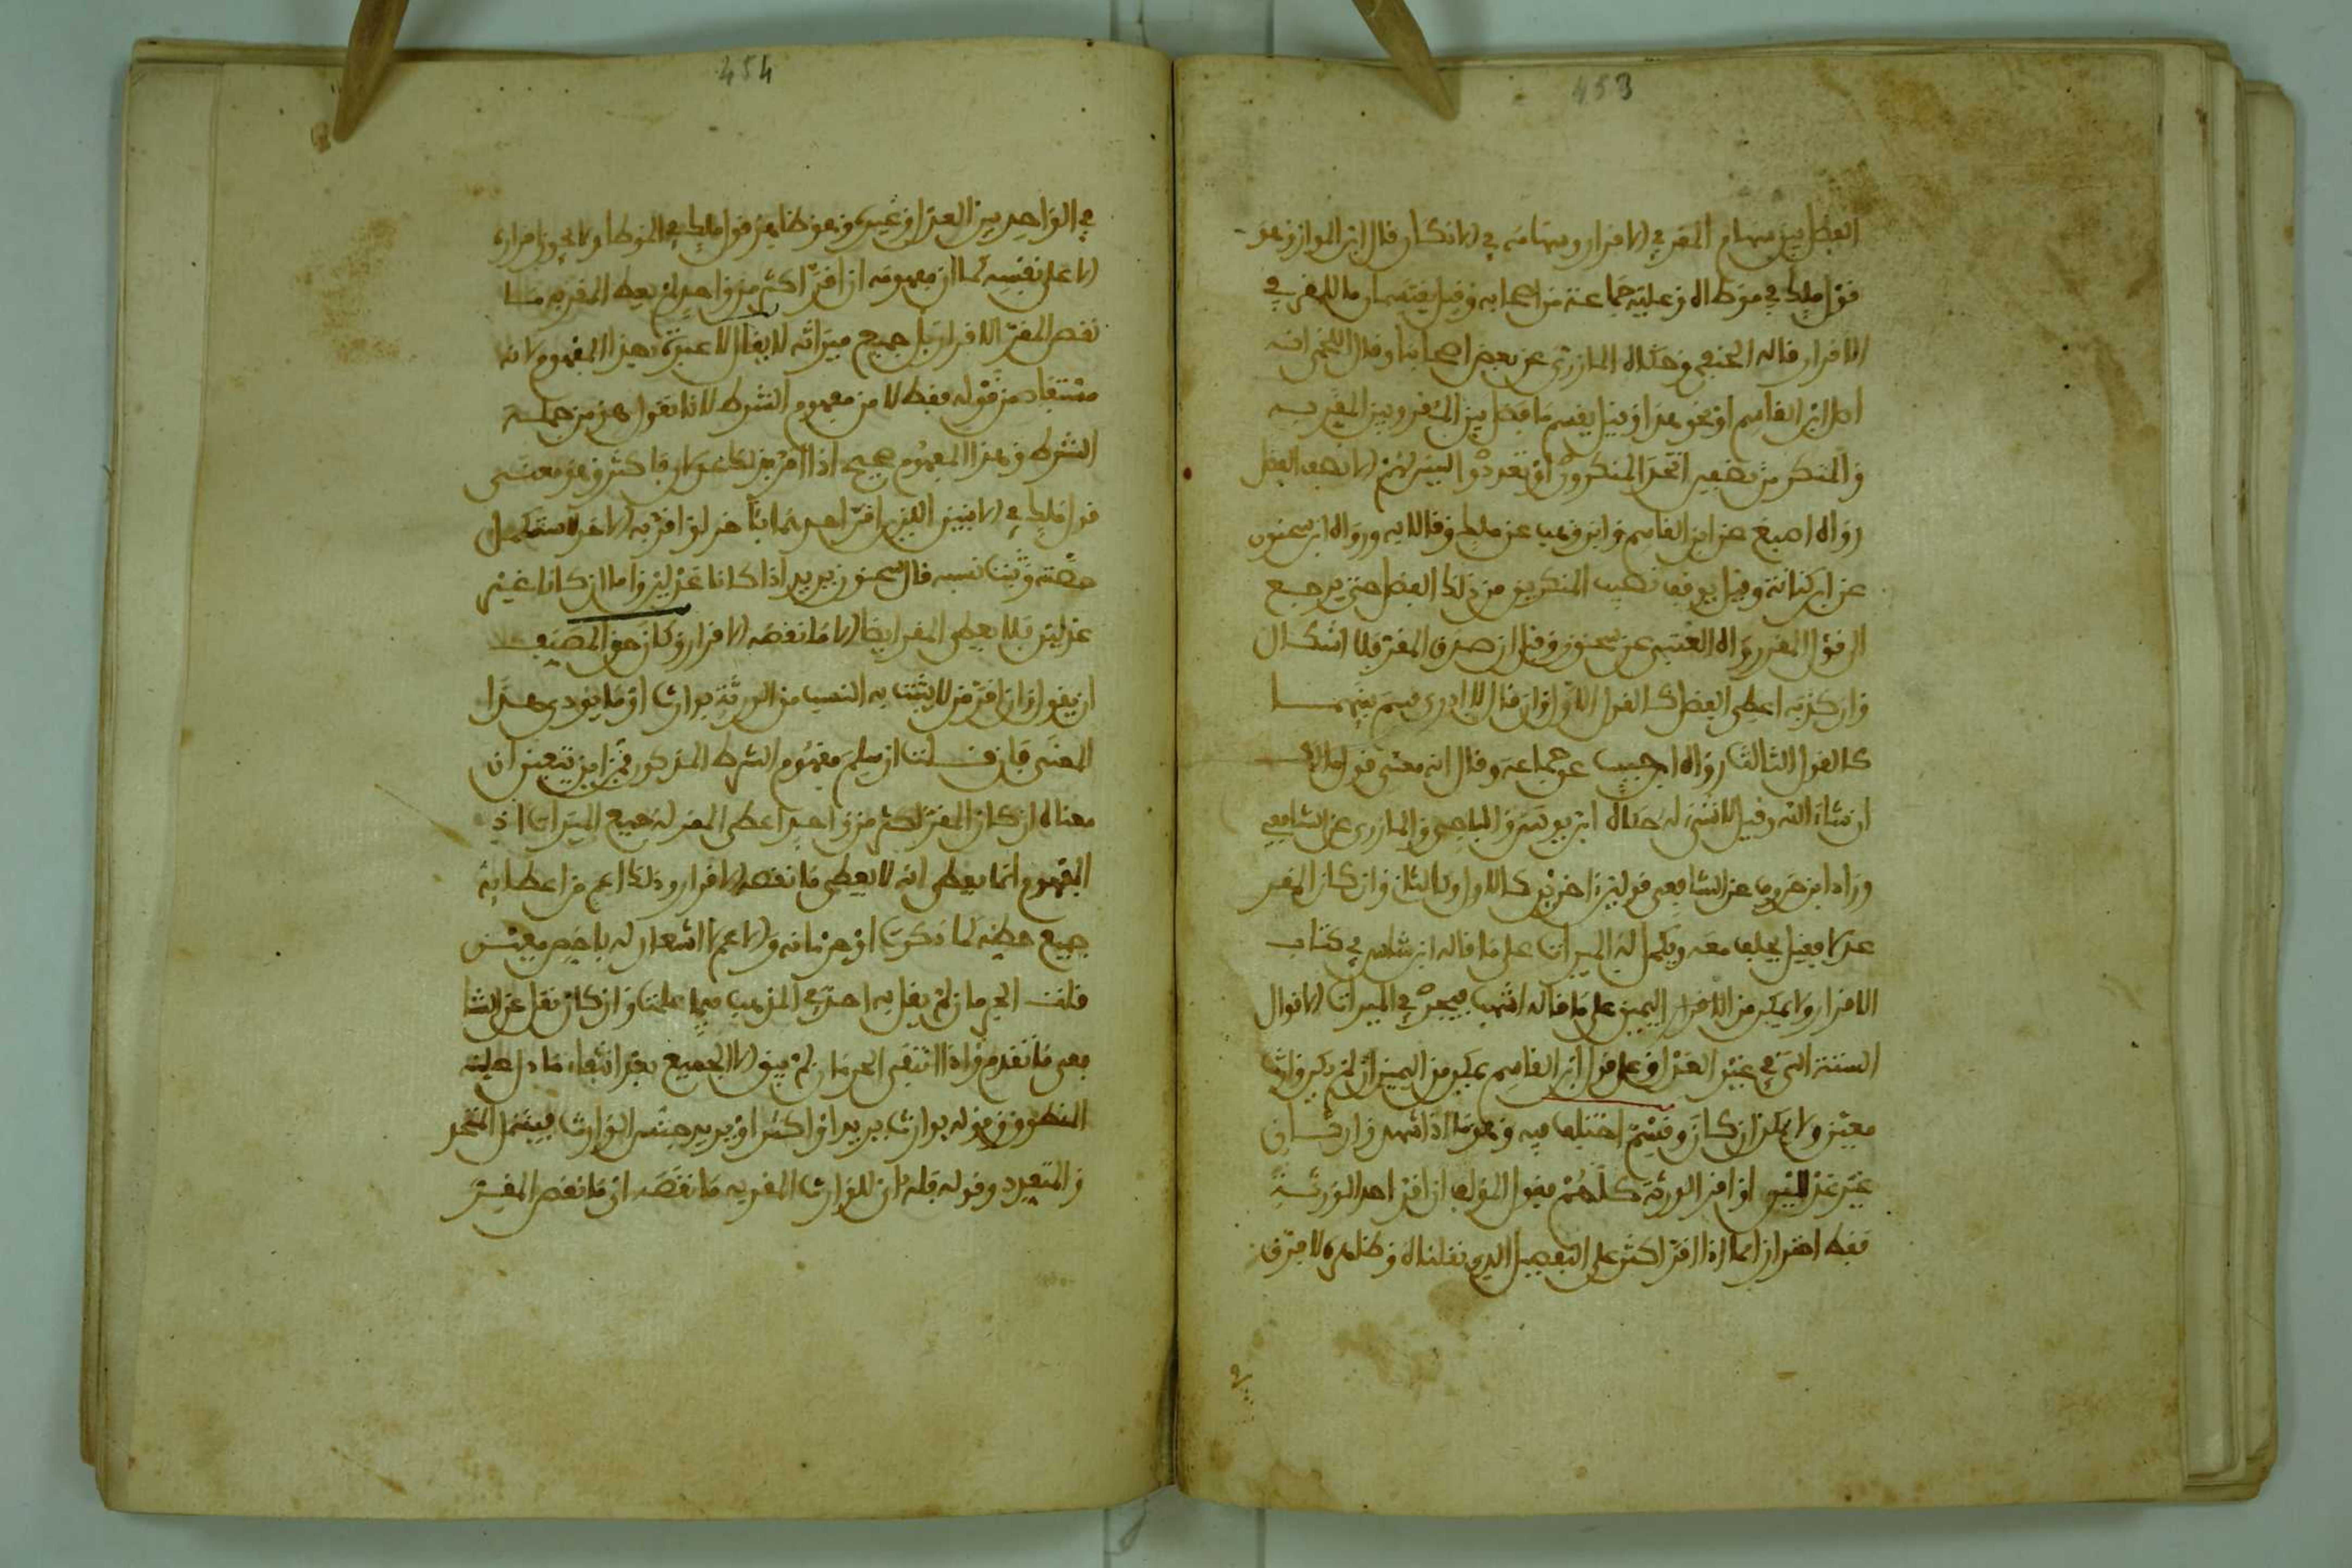 453
الفضل بين سهام المقر في الاقرار وسهامه في الانكار قال ابن المواز وهو
قول ملك في موطاه وعليه جماعة من اصحابه وقيل يقتسمان ما للمقر في
الاقرار قاله الحنفي وحكاه المازري عن بعض اصحابنا وقال اللخمي انه
اصل ابن القاسم او نحو هذا وقيل يقسم ما فضل بين المقر وبين المقر به
والمنكر من نصفين اتحد المنكرون او تعددوا ليس لهم الا نصف الفضل
رواه اصبغ عن ابن القاسم وابن وهب عن ملك وقالا به ورواه ابن سحنون
عن ابن كنانة وقيل يوقف نصيب المنكرين من ذلك الفضل حتى يرجع
الى قول المقر رواه العتبي عن سحنون وقيل ان صدق المقر فلا اشكال
وان كذبه اعطي الفضل كالقول الاول وان قال لا ادري قسم بينهما
كالقول الثالث رواه ابن حبيب عن جماعة وقال انه معنى قول مالك
ان شاء الله وقيل لا شيء له حكاه ابن يونس والباجي والمازري عن الشافعي
وزاد ابن خروف عن الشافعي قولين اخرين كالاول والثاني وان كان المقر
عدلا فقيل يحلف معه ويكمل له الميراث على ما قاله ابن شاس في كتاب
الاقرار ولا يمكن من الاقرار اليمين على ما قاله اشهب فيجري في الميراث الاقوال
الستة التي في غير العدل وعلى قول ابن القاسم يمكن من اليمين ان لم يكن وارث
معين ولا يمكن ان كان وقسم اختلف فيه وهو ما اذا شهد وارثان
غير عدلين او اقر الورثة كلهم فقول المؤلف ان اقر احد الورثة
فقط احترازا مما اذا اقر اكثر على التفصيل الذي نقلناه وظاهره لا فرق
454
في الواحد بين العدل وغيره وهو ظاهر قول ملك في الموطا ولا يجوز اقراره
الا على نفسه كما ان مفهومه ان اقر اكثر من واحد لم يعط المقر به ما
نقص المقر الاقرار بل جميع ميراثه لا يقال لا عبرة بهذا المفهوم لانه
مستفاد من قوله فقط لا من مفهوم الشرط لانا نقول هو من جملة
الشرط وهذا المفهوم صحيح اذا اقر من كان عدلان فاكثر وهو معنى
قول ملك في الابنين اللذين اقر احدهما باخ لو اقر به الاخر لاستكمل
حصته وثبت نسبه قال سحنون يريد اذا كانا عدلين واما ان كانا غير
عدلين فلا يعطى المقر ايضا الا ما نقصه الاقرار وكان حق المصنف
ان يقول وان اقر من لا يثبت به النسب من الورثة بوارث او ما يؤدي هذا
المعنى فان قلت ان سلم مفهوم الشرط المذكور فمن اين يتعين ان
معناه ان كان المقر اكثر من واحد اعطي المقر له جميع الميراث اذ
المفهوم انما يعطي انه لا يعطى ما نقصه الاقرار وذلك اعم من اعطائه
جميع حظه كما ذكرت او حرمانه والاعم لا اشعار له باخص معين
قلت الحرمان لم يقل به احد في المذهب فيما علمت وان كان نقل عن الشا
فعي ما تقدم واذا انتفى الحرمان لم يبق الا الجميع بعد انتفاء ما دل عليه
المنطوق وقوله بوارث يريد او اكثر او يريد جنس الوارث فيشمل المتحد
والمتعدد وقوله فله اي للوارث المقر به ما نقصه اي ما نقص المقر